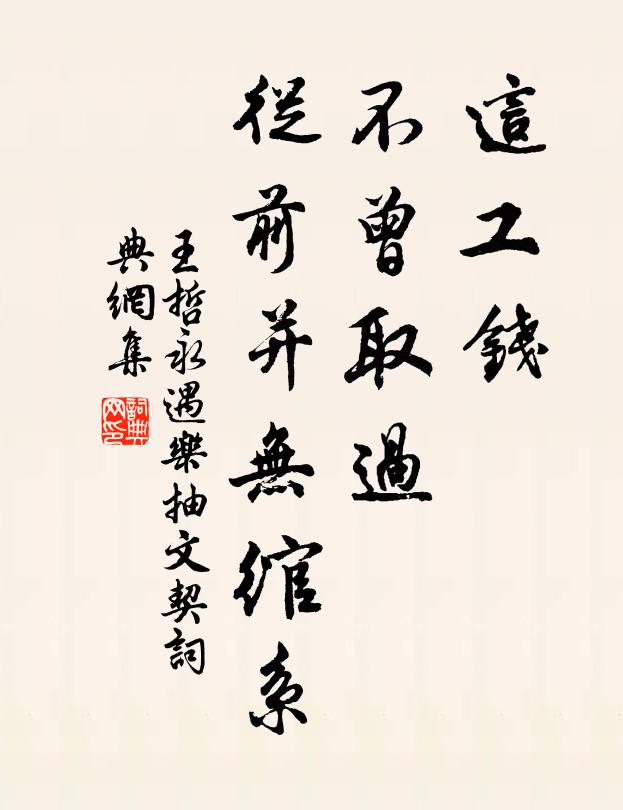 這工錢
不曾取過
從前并無綰系
王哲永遇樂抽文契詞
典網集
詞典
网印